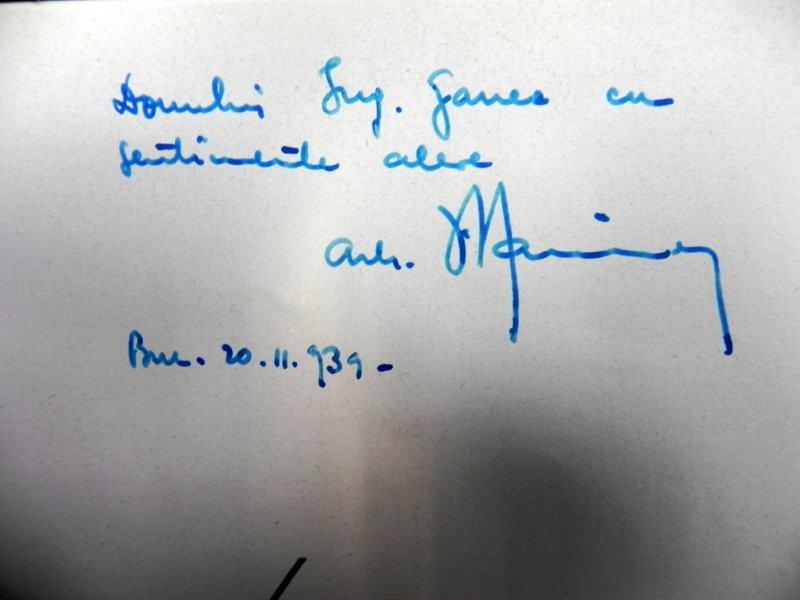 Domnului Ing. Ganea cu
sentimente alese
Arh.
Buc. 20.11.939-